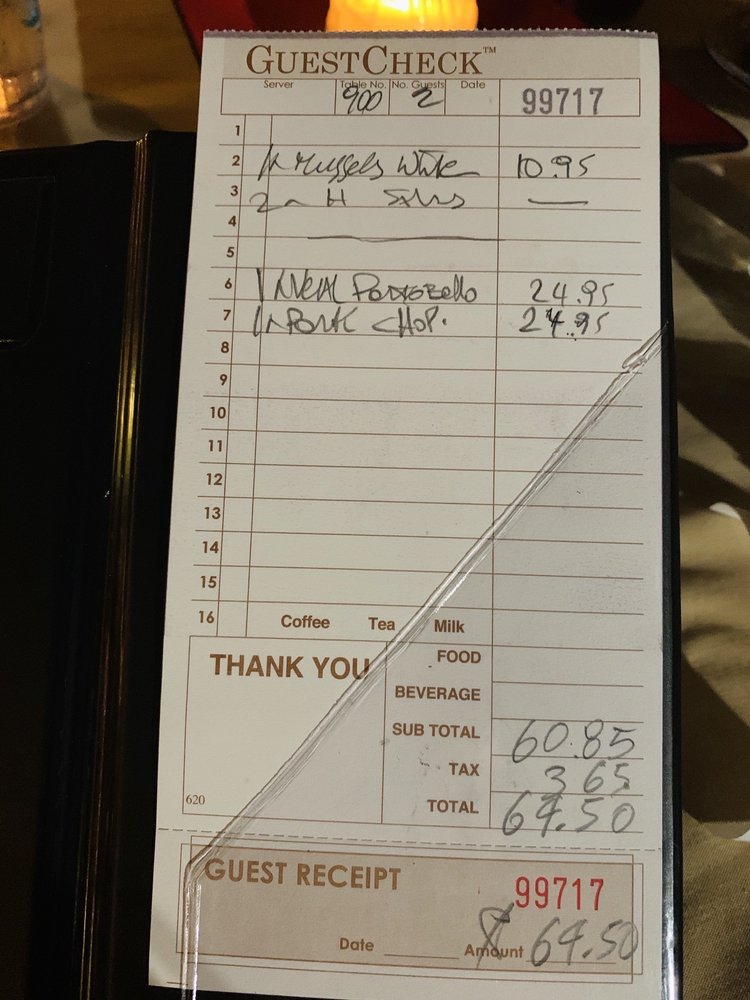 GUESTCHECK™
Server Table No. No. Guests Date
900 2 99717
1
2 Mussels White 10.95
3 2 H —
4
5
6 1 Veal Portobello 24.95
7 1 Pork Chop. 24.95
8
9
10
11
12
13
14
15
16 Coffee Tea Milk
THANK YOU
FOOD
BEVERAGE
SUB TOTAL 60.85
TAX 3.65
TOTAL 64.50
620
GUEST RECEIPT 99717
Date Amount $ 64.50